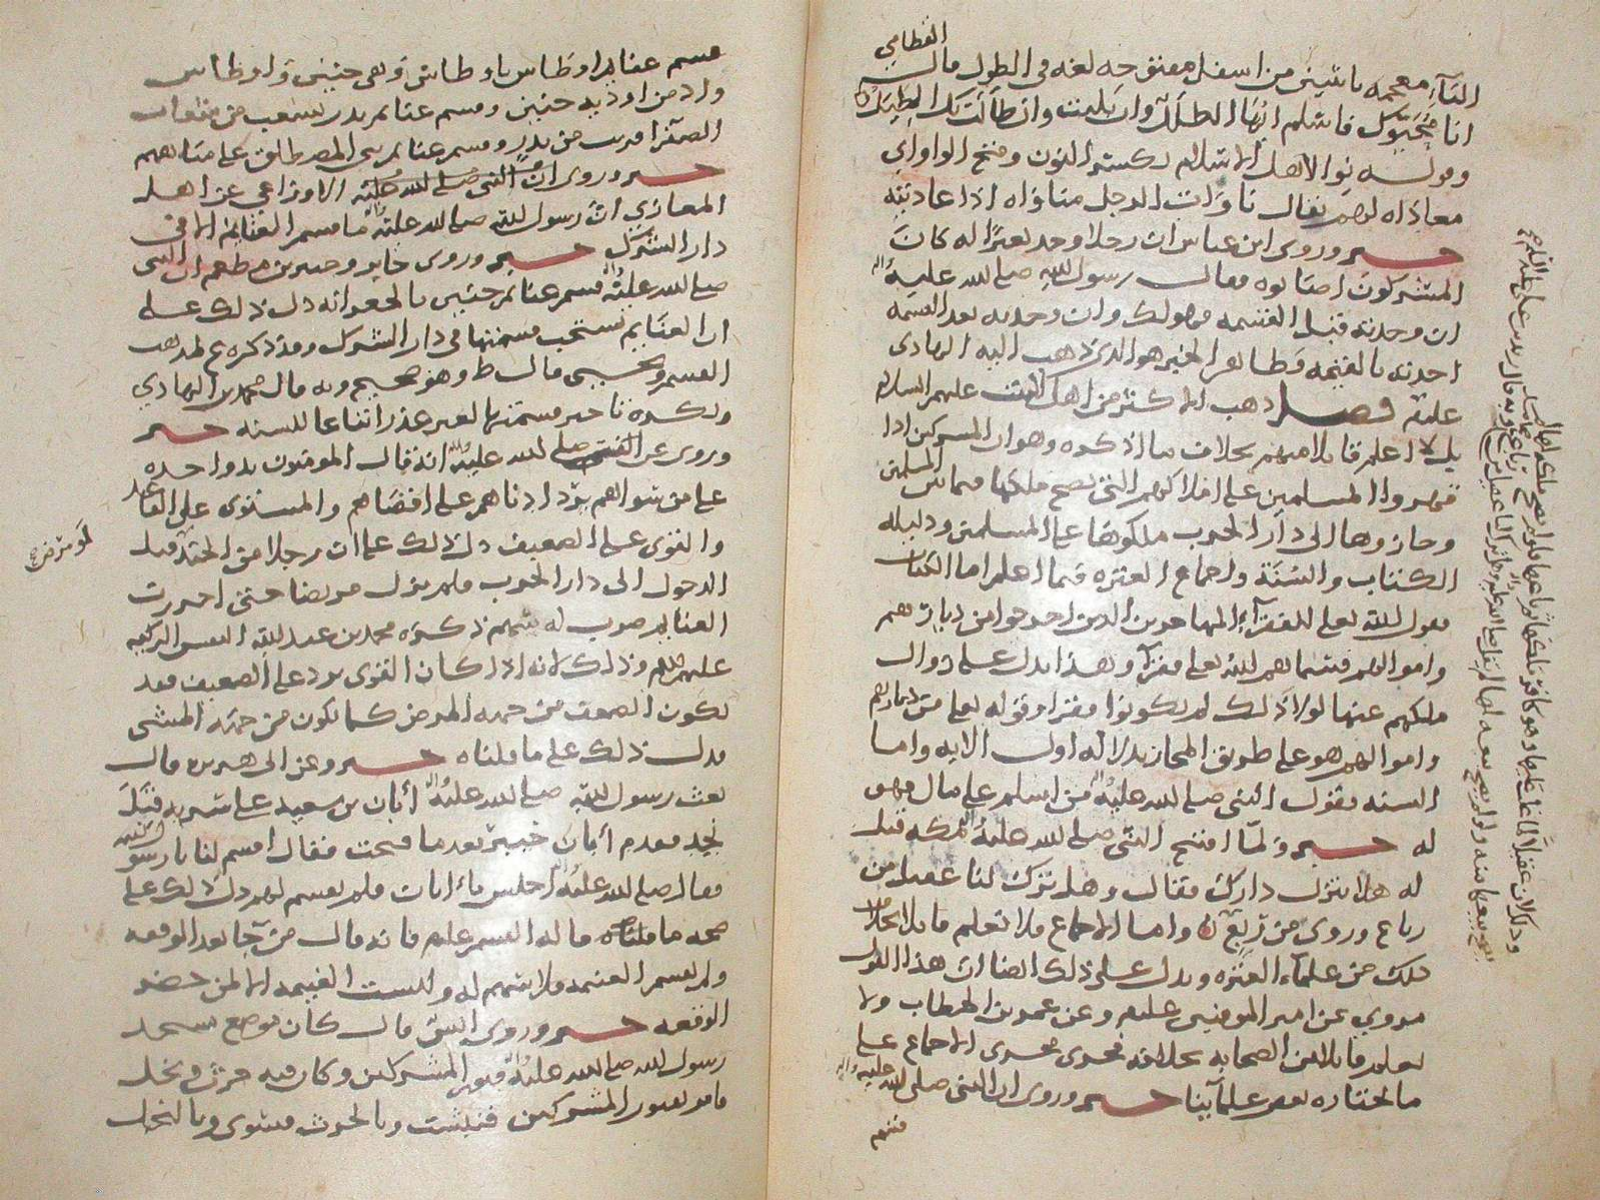 القطامي
التاء معجمه باثنين من اسفل مفتوحه لغه في الطول قال
انا محيوك فاسلم ايها الطلل وان بليت وان طالت بك الطيل
وقوله نوا لاهل الاسلام بكسر النون وفتح الواو اي
معاداه لهم يقال ناوات الرجل مناواه اذا عاديته
خبر وروى ابن عباس ان رجلا وجد بعيرا له كان
المشركون اصابوه فقال رسول الله صلى الله عليه واله
ان وجدته قبل القسمه فهو لك وان وجدته بعد القسمه
اخذته بالقيمه وظاهر الخبر هو الذي ذهب اليه الهادي
عليه فصل ذهب الاكثر من اهل البيت عليهم السلام
بل لا اعلم قائلا منهم بخلاف ما اذكره وهو ان المشركين اذا
قهروا المسلمين على املاكهم التي يصح ملكها فيما بين المسلمين
وحازوها الى دار الحرب ملكوها على المسلمين ودليله
الكتاب والسنة واجماع العتره فيما اعلم اما الكتاب
فقول الله تعالى للفقراء المهاجرين الذين اخرجوا من ديارهم
واموالهم فسماهم الله تعالى فقراء وهذا يدل على زوال
ملكهم عنها لولا ذلك لم يكونوا فقراء وقوله تعالى من ديارهم
واموالهم هو على طريق المجاز بدلاله اول الايه واما
السنه فقول النبي صلى الله عليه واله من اسلم على مال فهو
له خبر ولما افتتح النبي صلى الله عليه واله مكه قيل
له هلا تنزل دارك فقال وهل ترك لنا عقيل من
رباع وروي من ربع واما الاجماع فلا نعلم قائلا بخلاف
ذلك من علماء العتره ويدل على ذلك ايضا ان هذا القول
مروي عن امير المومنين عليلم وعن عمر بن الخطاب ولا
نعلم قائلا من الصحابه بخلافه فجرى مجرى الاجماع على
ما اختاره بعض علمائنا خبر وروي ان النبي صلى الله عليه واله
قسم
قسم غنايم اوطاس باوطاس وهي حنين واوطاس
واد من اوديه حنين وقسم غنايم بدر بشعب من شعاب
الصفرا قريب من بدر وقسم غنايم بني المصطلق على مياههم
خبر وروى الاوزاعي عن اهل
المغازي ان رسول الله صلى الله عليه واله ما قسم الغنايم الا في
دار الشرك خبر وروى جابر وجبير بن مطعم ان النبي
صلى الله عليه واله قسم غنايم حنين بالجعرانه دل ذلك على
ان الغنايم تستحب قسمتها في دار الشرك وقد ذكره ع لمذهب
القسم ويحيى قال ط وهو صحيح وبه قال محمد بن الهادي
ويكره تاخير قسمتها لغير عذر اتباعا للسنه خبر
وروي عن النبي صلى الله عليه واله انه قال المومنون يد واحده
على من سواهم يرد ادناهم على اقصاهم والمستوي على القاعد
والقوي على الضعيف دل ذلك على ان رجلا من الجند قبل
لو مرض
الدخول الى دار الحرب ولم يزل مريضا حتى احرزت
الغنايم ضرب له بسهم ذكره محمد بن عبد الله النفس الزكيه
عليهم السلم وذلك لانه اذا كان القوي يرد على الضعيف فقد
يكون الضعف من جهه المرض كما يكون من جهه المشي
فدل ذلك على ما قلناه خبر وعن ابي هريره قال
بعث رسول الله صلى الله عليه واله أبان بن سعيد على سريه قبل
نجد فقدم أبان خيبر بعد ما فتحت فقال اقسم لنا يا رسول الله
فقال صلى الله عليه واله اجلس يا أبان فلم يقسم لهم دل ذلك على
صحه ما قلناه ما له القسم عليلم فانه قال من جا بعد الوقعه
ولم يقسم الغنيمه فلا سهم له وليست الغنيمه الا لمن حضر
الوقعه خبر وروى انس قال كان موضع مسجد
رسول الله صلى الله عليه واله قبور المشركين وكان فيه حرث ونخل
فامر بقبور المشركين فنبشت وبالحرث فسوي وبالنخل